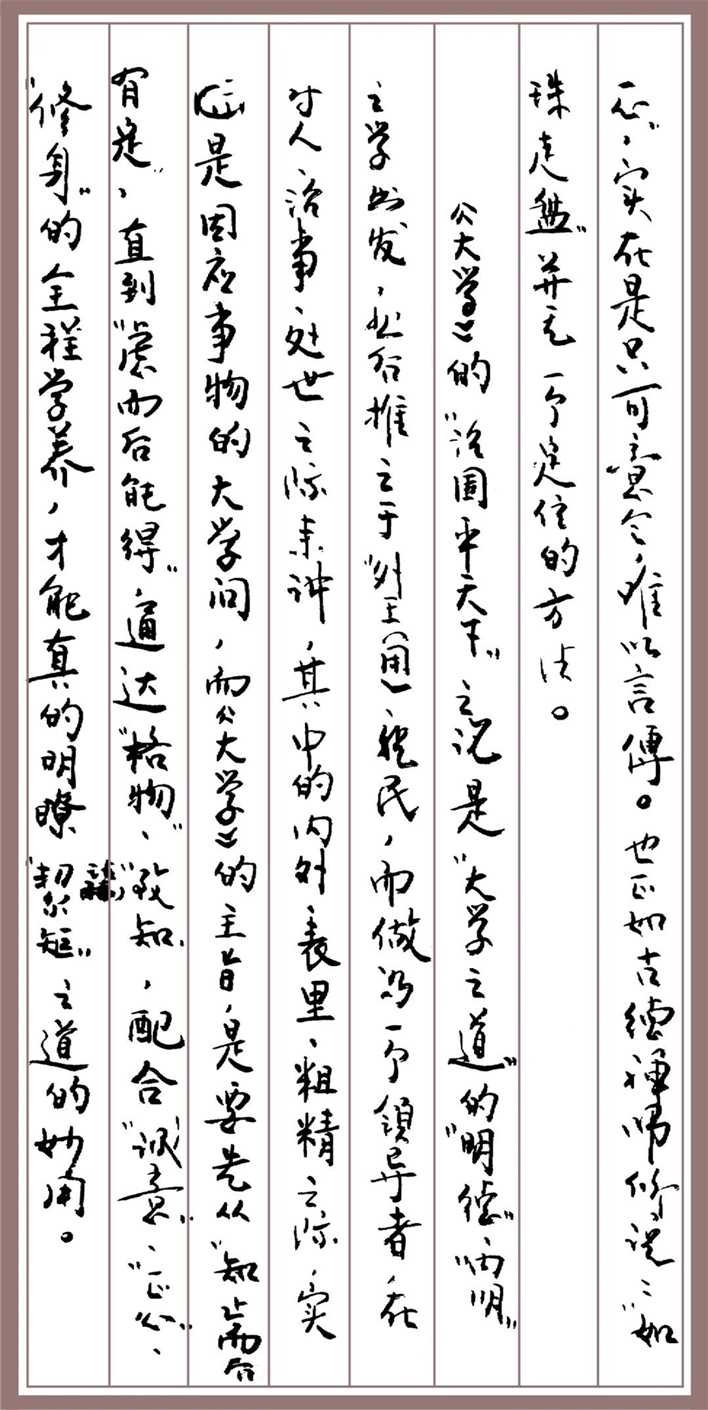 心",实在是只可意会,难以言傳。也正如古德禅师所说:"如
珠走盤"并无一个定住的方法。
《大学》的"治国平天下"之说是"大学之道"的"明德"、"内明"
之学出发,然后推之于"外王(用)"、親民,而做为一个領导者,在
对人、治事、处世之际来讲,其中的内外、表里、粗精之际,实
是因应事物的大学问,而《大学》的主旨,是要先从"知止而后
有定",直到"虑而后能得",通达"格物"、"致知",配合"诚意"、"正心"、
"修身"的全程学养,才能真的明瞭"絜矩"之道的妙用。